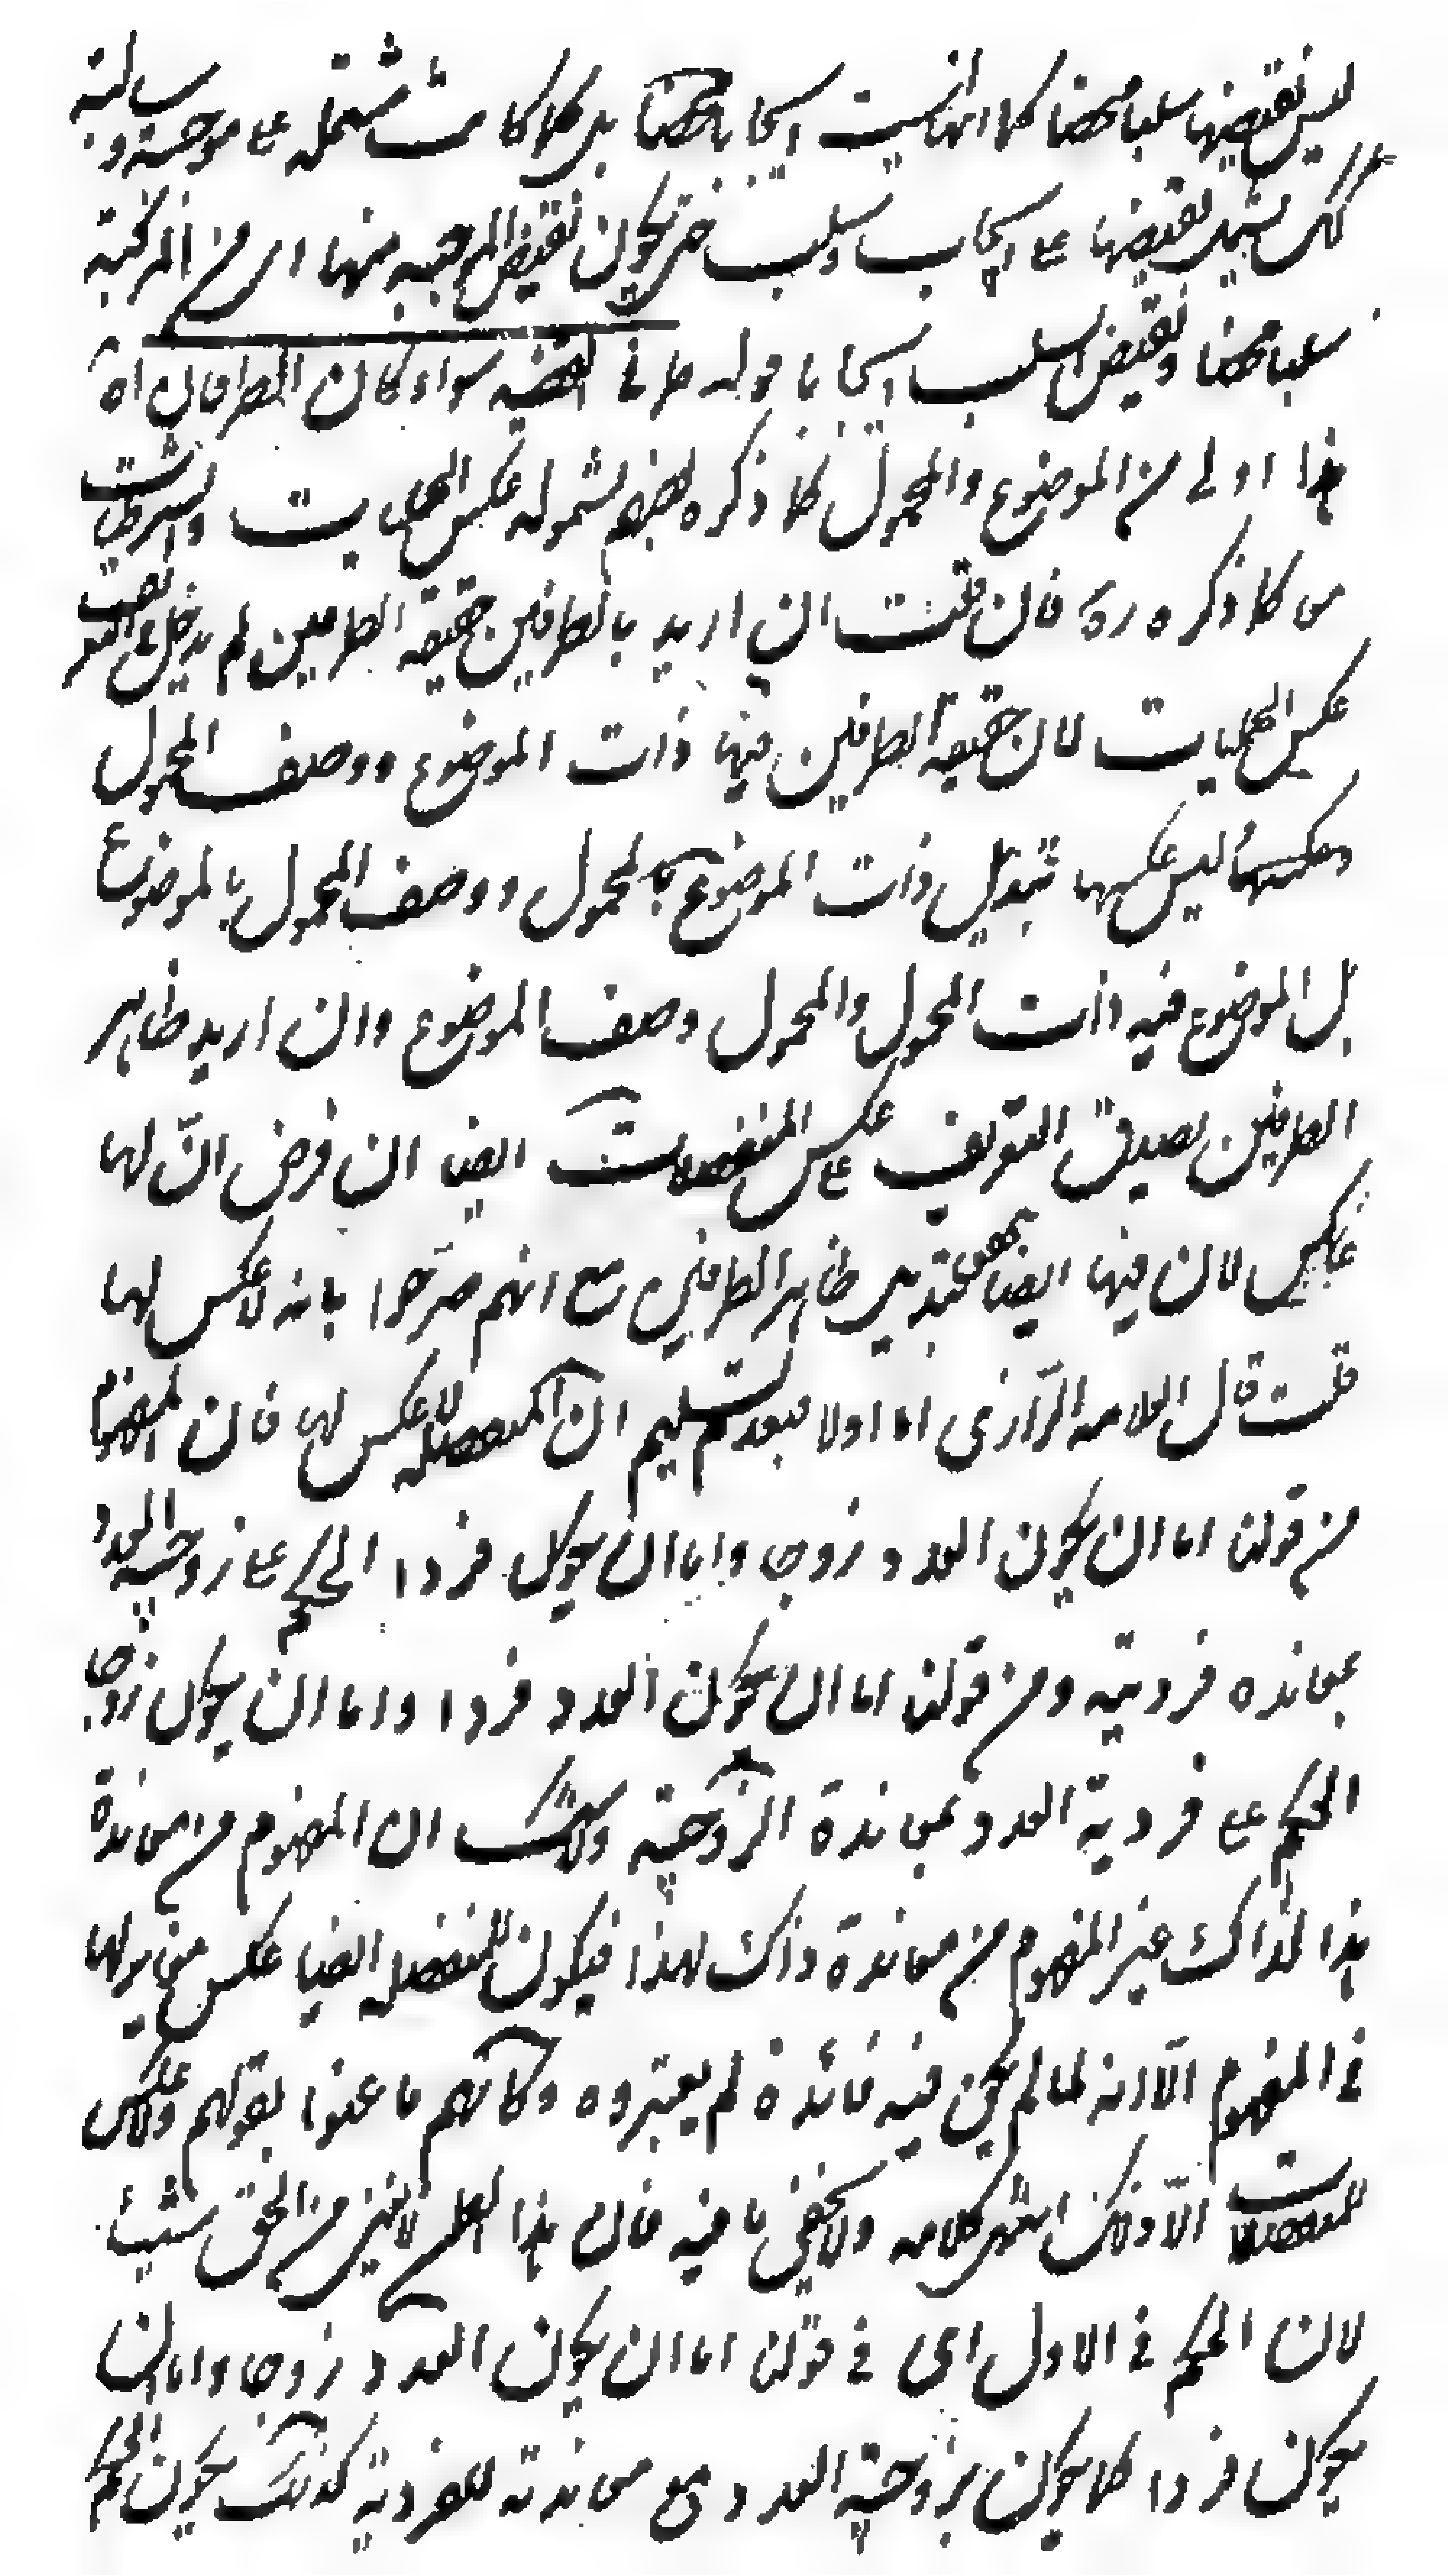 ليس نقيضها سلبا محضا كما انها ليست ايجابا محضا بل كما كانت مشتملة على موجبة وسالبة
كك يشتمل نقيضها على ايجاب وسلب حتى يكون نقيض الموجبة منها اى من المركبة
سلبا محضا ونقيض السلب ايجابا قوله طرفى القضية سواء كان الطرفان اه
هذا اولى من الموضوع والمحمول كما ذكره بعضهم لشموله عكس الحمليات والشرطيات
كما ذكره ره فان قلت ان اريد بالطرفين حقيقة الطرفين لم يدخل فى التعريف
عكس الحمليات لان حقيقة الطرفين فيها ذات الموضوع ووصف المحمول
وعكسها ليس عكسها تبديل ذات الموضوع بالمحمول ووصف المحمول بالموضوع
بل الموضوع فيه ذات المحمول والمحمول وصف الموضوع وان اريد ظاهر
الطرفين يصدق التعريف على عكس المنفصلات ايضا ان فرض انّ لها
عكس لان فيها ايضا تبديل ظاهر الطرفين مع انهم صرّحوا بانه لا عكس لها
قلت قال العلامه الرّازى اما اولا فبعد تسليم ان المنفصله لا عكس لها فان المفهوم
من قولنا اما ان يكون العدد زوجا واما ان يكون فردا الحكم على زوجية العدد
بمعاندة فرديته ومن قولنا اما ان يكون العدد فردا واما ان يكون زوجا
الحكم على فردية العدد بمعاندة الزوجية ولا شك ان المفهوم من معاندة
هذا لذاك غير المفهوم من معاندة ذاك لهذا فيكون للمنفصله ايضا عكس مغاير لها
فى المفهوم الّا انه لما لم يكن فيه فائدة لم يعتبروه وكانهم ما عنوا بقولهم لا عكس
للمنفصلات الّا ذلك انتهى كلامه ولا يخفى ما فيه فان هذا الكلام لا يغنى من الحق شيئا
لان الحكم فى الاول اى فى قولنا اما ان يكون العدد زوجا واما ان
يكون فردا كما يكون بزوجية العدد مع معاندته للفردية كذلك يكون الحكم